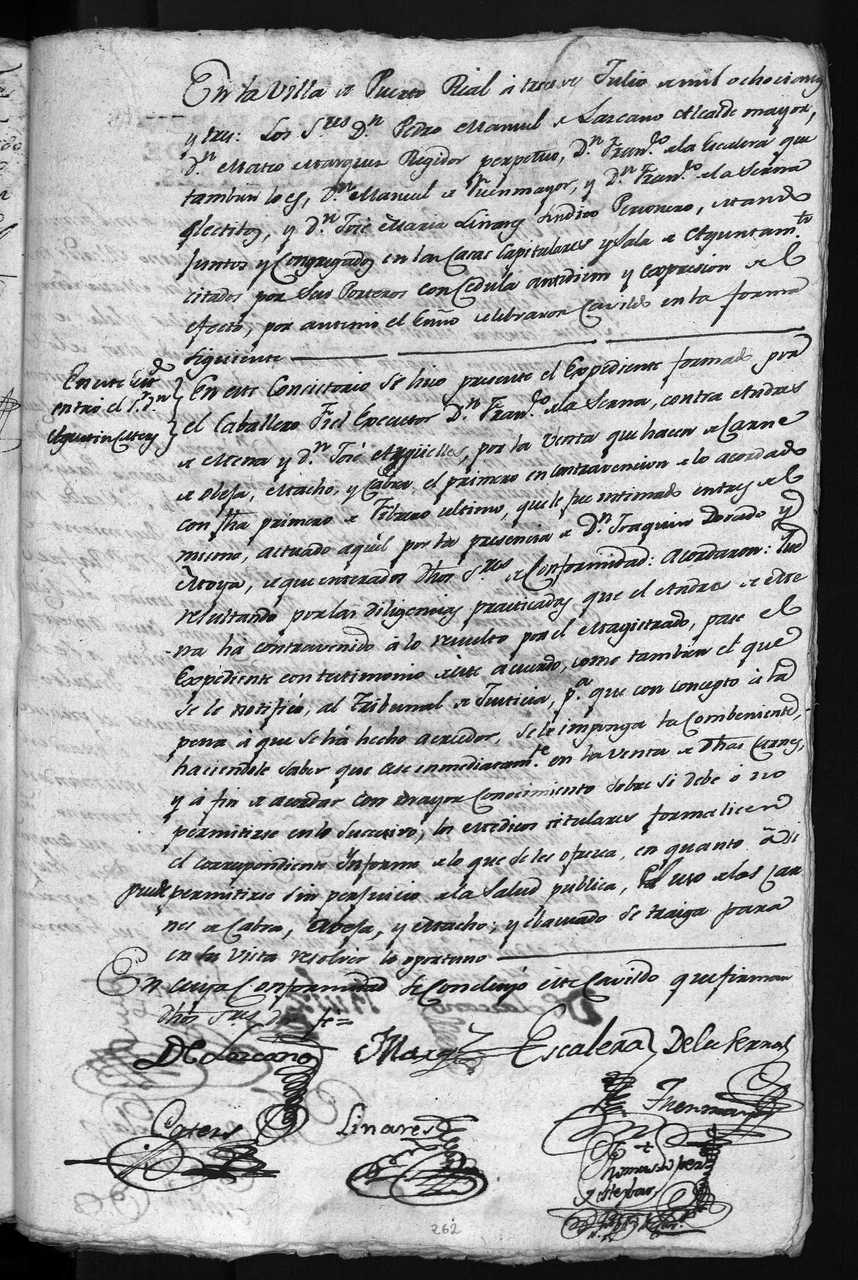 En la Villa de Puerto Real á trece de Julio de mil ochocientos
y tres: Los S.res D.n Pedro Manuel de Lazcano Alcalde mayor,
D.n Mateo Marquez Regidor perpetuo, D.n Fran.co de la Escalera que
tambien lo es, D.n Manuel de Fuenmayor, y D.n Fran.co de la Serna
electitos, y D.n José Maria Linares Sindico Personero, estando
juntos y Congregados en las Casas Capitulares y Sala de Ayuntam.to
citados por sus Porteros con Cedula antediem y expresion de el
efecto, por antemi el Esno celebraron Cavildo en la forma
siguiente
En este Cav.do
entró el S.r D.n
Agustin Cotery
En este Concistorio se hizo presente el Expediente formado pr
el Caballero Fiel Executor D.n Fran.co de la Serna, contra Andres
de Mena y D.n José Argüelles, por la venta que hacen de Carne
de Obeja, Macho, y Cabra, el primero en contravencion de lo acordado
con fha primero de Febrero ultimo, que le fue intimado en tres de el
mismo, actuado aquél por la presencia de D.n Joaquin Dorado y
Moya, de que enterados dhos S.res de Conformidad: Acordaron: Que
resultando por las diligencias practicadas que el Andres de Me
na há contravenido á lo resuelto por el Magistrado, pase el
Expediente con testimonio de este acuerdo, como tambien el que
se le notificó, al Tribunal de Justicia, p.a que con concepto á la
pena á que se há hecho acreedor, se le imponga la combeniente,
haciendole saber que cese inmediatam.te en la venta de dhas Carnes,
y á fin de acordar con mayor conocimiento sobre si debe ó no
permitirse en lo sucesivo, los Medicos titulares formalicen
el correspondiente Informe de lo que se les ofresca, en quanto á si
puede permitirse sin perjuicio de la Salud publica, el uso de las Car
nes de Cabra, Obeja, y Macho; y ebacuado se traiga para
en su vista resolver lo oportuno
En cuya Conformidad se Concluyó este Cavildo que firman
dhos S.res doy fe=
De Lazcano Marqz Escalera De la Serna
Cotery Linares Fuenmayor
262